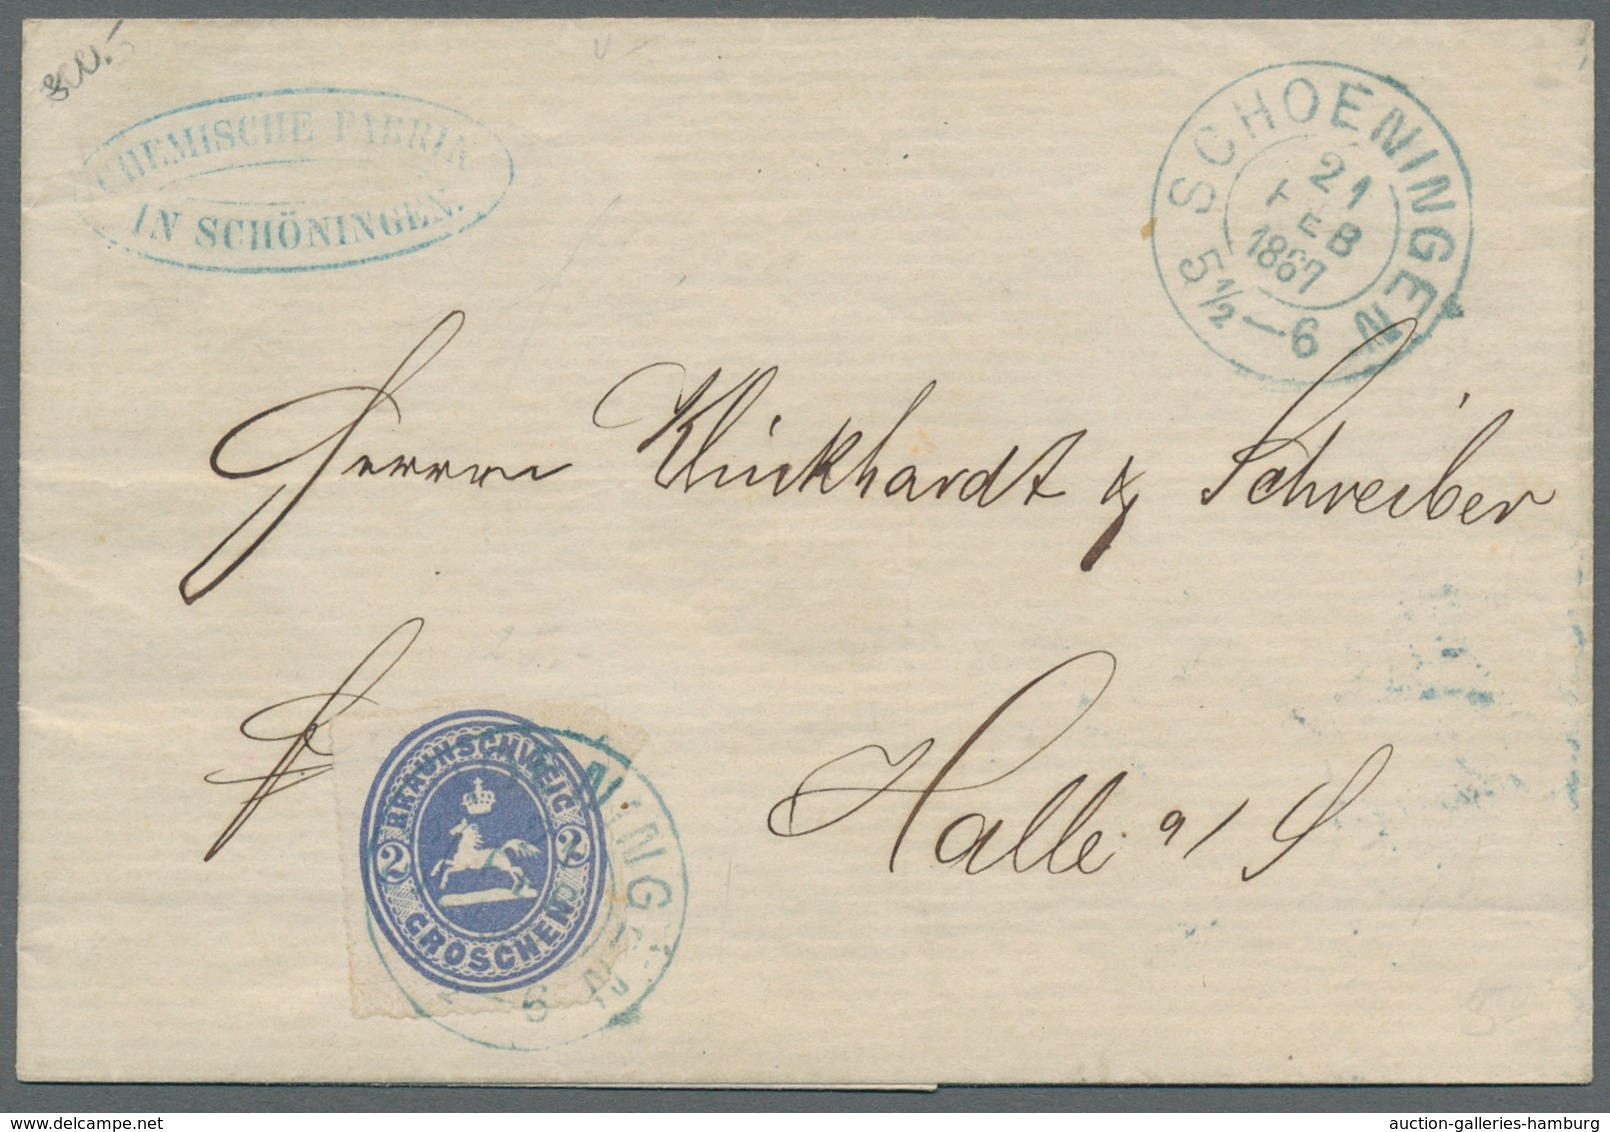 CHEMISCHE FABRIK
IN SCHÖNINGEN.
SCHOENINGEN
21
FEB
1867
5½—6
Herren Klinkhardt & Schreiber
Halle a/S
BRAUNSCHWEIG
2 2
GROSCHEN
NINGEN
auction-galleries-hamburg - www.delcampe.net